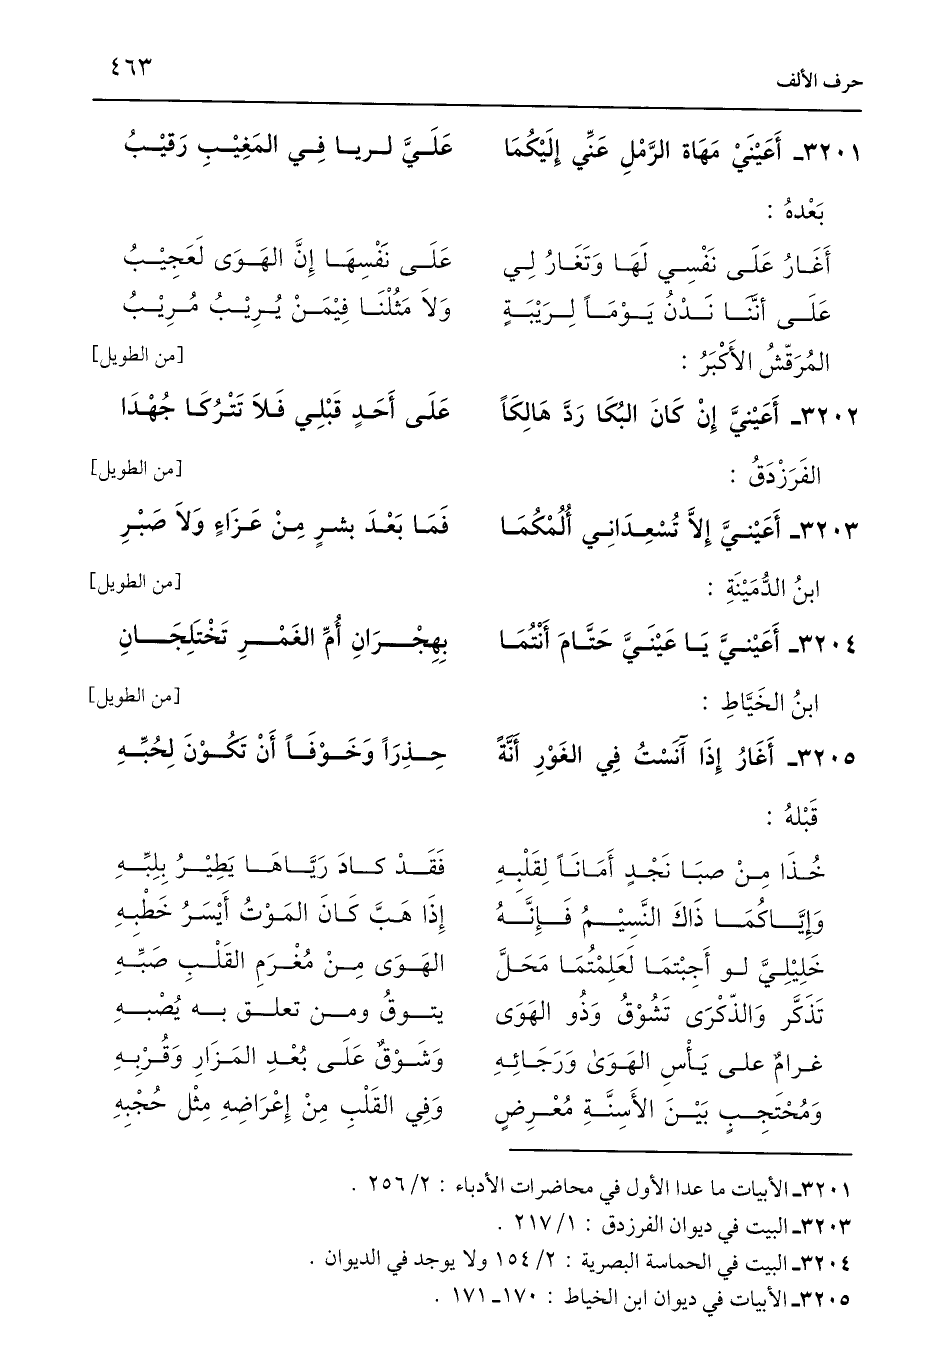 حرف الألف ٤٦٣
٣٢٠١ـ أَعَيْنَيْ مَهَاة الرَّمْلِ عَنِّي إِلَيْكُمَا عَلَيَّ لريا فِي المَغِيْبِ رَقيْبُ
بَعْدهُ :
أَغَارُ عَلَى نَفْسِي لَهَا وَتَغَارُ لِي عَلَى نَفْسِهَا إِنَّ الهَوَى لَعَجِيْبُ
عَلَى أنَّنَا نَدْنُ يَوْمَاً لِرَيْبَةٍ وَلاَ مَثُلْنَا فِيْمَنْ يُرِيْبُ مُرِيْبُ
المُرَقّشُ الأَكْبَرُ : [من الطويل]
٣٢٠٢ـ أَعَيْنيَّ إِنْ كَانَ البُكَا رَدَّ هَالِكَاً عَلَى أَحَدٍ قَبْلِي فَلاَ تَتْرُكَا جُهْدَا
الفَرَزْدَقُ : [من الطويل]
٣٢٠٣ـ أَعَيْنيَّ إِلاَّ تُسْعِدَانِي أَلُمْكُمَا فَمَا بَعْدَ بشرٍ مِنْ عَزَاءٍ وَلاَ صَبْرِ
ابنُ الدُّمَيْنَةِ : [من الطويل]
٣٢٠٤ـ أَعَيْنيَّ يَا عَيْنَيَّ حَتَّامَ أَنْتُمَا بِهِجْرَانِ أُمِّ الغَمْرِ تَخْتَلِجَانِ
ابنُ الخَيَّاطِ : [من الطويل]
٣٢٠٥ـ أَغَارُ إِذَا آنَسْتُ فِي الغَوْرِ أَنَّةً حِذِرَاً وَخَوْفَاً أَنْ تَكُوْنَ لِحُبِّهِ
قَبْلهُ :
خُذَا مِنْ صبَا نَجْدٍ أَمَانَاً لِقَلْبِهِ فَقَدْ كادَ رَيَّاهَا يَطِيْرُ بِلبِّهِ
وَإِيَّاكُمَا ذَاكَ النَّسِيْمُ فَإِنَّهُ إِذَا هَبَّ كَانَ المَوْتُ أَيْسَرُ خَطْبِهِ
خَلِيْلِيَّ لو أجبْتُمَا لَعَلِمْتُمَا مَحَلَّ الهَوَى مِنْ مُغْرَمِ القَلْبِ صَبِّهِ
تَذَكَّر وَالذّكْرَى تَشُوْقُ وَذُو الهَوَى يتوقُ ومن تعلق به يُصْبِهِ
غرامٌ على يَأْسِ الهَوَىٰ وَرَجَائِهِ وَشَوْقٌ عَلَى بُعْدِ المَزَارِ وَقُرْبِهِ
وَمُحْتَجِبٍ بَيْنَ الأَسِنَّةِ مُعْرِضٍ وَفِي القَلْبِ مِنْ إِعْرَاضِهِ مِثْل حُجْبِهِ
٣٢٠١ـ الأبيات ما عدا الأول في محاضرات الأدباء : ٢/ ٢٥٦ .
٣٢٠٣ـ البيت في ديوان الفرزدق : ١/ ٢١٧ .
٣٢٠٤ـ البيت في الحماسة البصرية : ٢/ ١٥٤ ولا يوجد في الديوان .
٣٢٠٥ـ الأبيات في ديوان ابن الخياط : ١٧٠ـ ١٧١ .